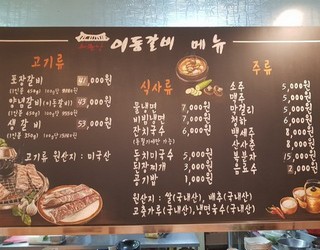 이동갈비 메뉴
고기류
포장갈비 41,000원
양념갈비(이동갈비) 43,000원
생갈비 53,000원
고기류 원산지 : 미국산
식사류
물냉면 7,000원
비빔냉면 7,000원
잔치국수 6,000원
동치미국수 5,000원
된장찌개 3,000원
공기밥 1,000원
주류
소주 5,000원
맥주 5,000원
막걸리 5,000원
청하 6,000원
백세주 8,000원
산사춘 8,000원
복분자 15,000원
음료수 2,000원
원산지 : 쌀(국내산), 배추(국내산)
고춧가루(국내산), 냉면육수(국내산)